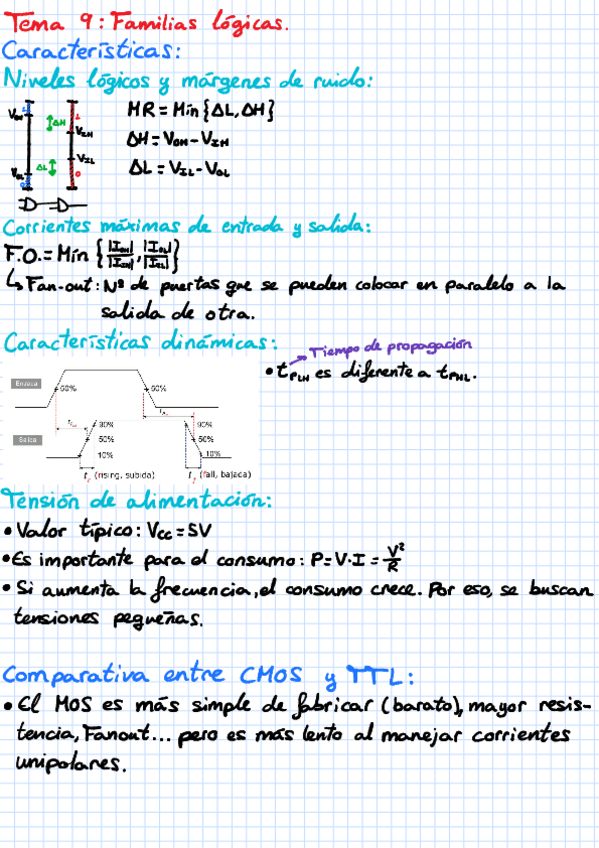 Tema 9: Familias lógicas.
Características:
Niveles lógicos y márgenes de ruido:
V_OH 1 ΔH 1 V_IH
MR = Min {ΔL, ΔH}
ΔH = V_OH - V_IH
V_OL 0 ΔL V_IL 0
ΔL = V_IL - V_OL
Corrientes máximas de entrada y salida:
F.O. = Min { |I_OH| / |I_IH| , |I_OL| / |I_IL| }
↳ Fan-out: Nº de puertas que se pueden colocar en paralelo a la
salida de otra.
Características dinámicas:
Tiempo de propagación
• t_PLH es diferente a t_PHL.
50% 50%
90% 90%
50% 50%
10% 10%
t_r (rising, subida) t_f (fall, bajada)
Tensión de alimentación:
• Valor típico: Vcc = 5V
• Es importante para el consumo: P = V·I = V²/R
• Si aumenta la frecuencia, el consumo crece. Por eso, se buscan
tensiones pequeñas.
Comparativa entre CMOS y TTL:
• El MOS es más simple de fabricar (barato), mayor resis-
tencia, Fanout... pero es más lento al manejar corrientes
unipolares.